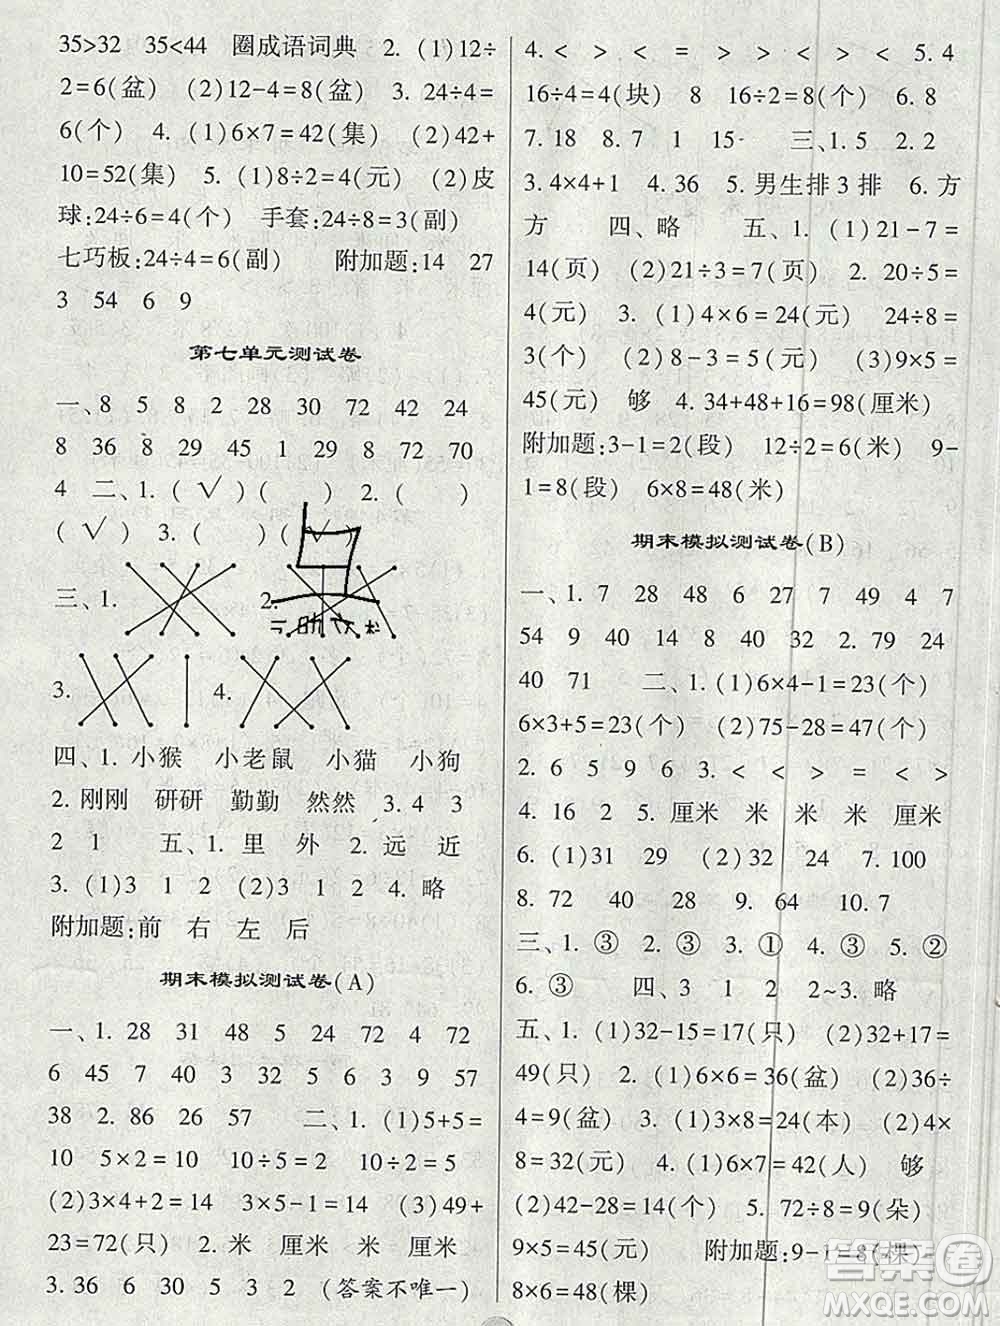 35>32 35<44 圈成语词典 2. (1)12÷
2=6(盆) (2)12-4=8(盆) 3. 24÷4=
6(个) 4. (1)6×7=42(集) (2)42+
10=52(集) 5. (1)8÷2=4(元) (2)皮
球:24÷6=4(个) 手套:24÷8=3(副)
七巧板:24÷4=6(副) 附加题:14 27
3 54 6 9
第七单元测试卷
一、8 5 8 2 28 30 72 42 24
8 36 8 29 45 1 29 8 72 70
4 二、1. (√)( ) 2. ( )
(√) 3. ( )(√)
三、1. 2.
3. 4.
四、1. 小猴 小老鼠 小猫 小狗
2. 刚刚 研研 勤勤 然然 3. 4 3
2 1 五、1. 里 外 2. 远 近
3. (1)3 1 2 (2)3 1 2 4. 略
附加题:前 右 左 后
期末模拟测试卷(A)
一、1. 28 31 48 5 24 72 4 72
6 45 7 40 35 5 6 3 9 57
38 2. 86 26 57 二、1. (1)5+5=
10 5×2=10 10÷5=2 10÷2=5
(2)3×4+2=14 3×5-1=14 (3)49+
23=72(只) 2. 米 厘米 米 厘米
3. 36 6 30 5 3 2 (答案不唯一)
4. < > < = > > < > < 5. 4
16÷4=4(块) 8 16÷2=8(个) 6. 8
7. 18 8. 7 1 15 三、1. 5 2. 2
3. 4×4+1 4. 36 5. 男生排3排 6. 方
方 四、略 五、1. (1)21-7=
14(页) (2)21÷3=7(页) 2. 20÷5=
4(元) 3. (1)4×6=24(元) 24÷8=
3(个) (2)8-3=5(元) (3)9×5=
45(元) 够 4. 34+48+16=98(厘米)
附加题:3-1=2(段) 12÷2=6(米) 9-
1=8(段) 6×8=48(米)
期末模拟测试卷(B)
一、1. 7 28 48 6 27 7 49 4 7
54 9 40 14 8 40 32 2. 79 24
40 71 二、1. (1)6×4-1=23(个)
6×3+5=23(个) (2)75-28=47(个)
2. 6 5 9 6 3. < < > = < >
4. 16 2 5. 厘米 米 米 米 厘米
6. (1)31 29 (2)32 24 7. 100
8. 72 40 28 9. 64 10. 7
三、1. ③ 2. ③ 3. ① 4. ③ 5. ②
6. ③ 四、3 1 2 2~3. 略
五、1. (1)32-15=17(只) (2)32+17=
49(只) 2. (1)6×6=36(盆) (2)36÷
4=9(盆) 3. (1)3×8=24(本) (2)4×
8=32(元) 4. (1)6×7=42(人) 够
(2)42-28=14(个) 5. 72÷8=9(朵)
9×5=45(元) 附加题:9-1=8(棵)
8×6=48(棵)
答案圈
MXQE.COM